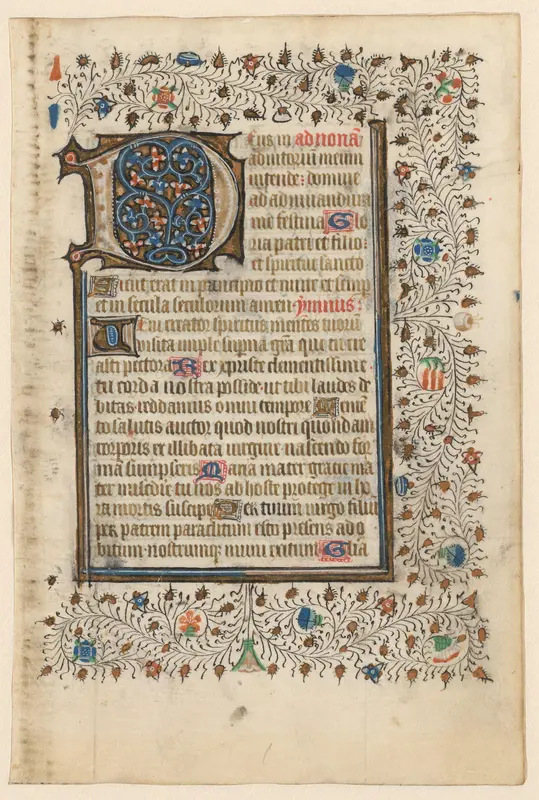 Deus in ad nonā
adiutoriū meum
intende: domine
ad adiuuandum
me festina Glo
ria patri et filio:
et spiritui sancto
Sicut erat in principio et nunc et semp
et in secula seculorum amen. ymnus:
Ueni creator spiritus mentes tuorū
uisita imple supna grā que tu cre
asti pectora Rex xpriste clementissime
tu corda nostra posside ut tibi laudes de
bitas reddamus omni tempore Memē
to salutis auctor quod nostri quondam
corporis ex illibata uirgine nascendo for
mā sumpseris Maria mater gracie ma
ter misericordie tu nos ab hoste protege in ho
ra mortis suscipe Per tuum uirgo filiū
per patrem paraclitum esto presens ad o
bitum nostrumq muni exitum Glia